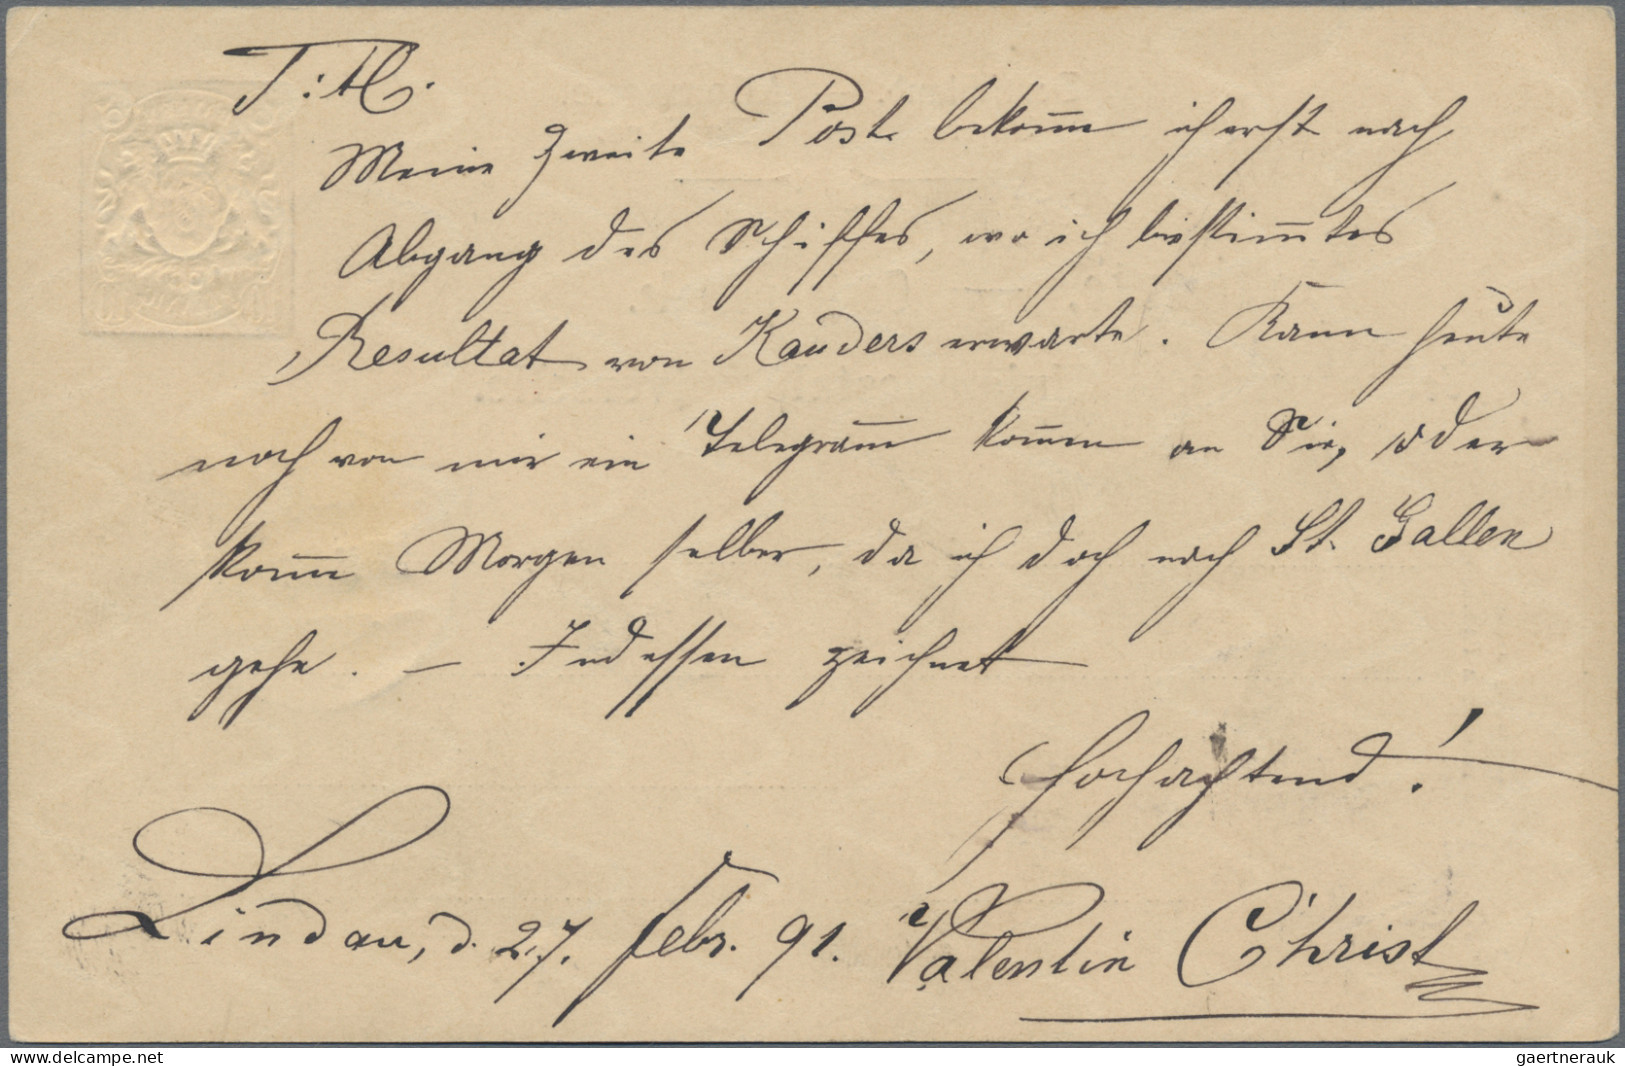 T. H.
Meine zweite Post bekom̄e ich erst nach
Abgang des Schiffes, wo ich bestim̄tes
Resultat von Kauders erwarte. Kann heute
noch von mir ein Telegram̄ kom̄en an Sie, oder
kom̄e Morgen selber, da ich doch nach St. Gallen
gehe. — Indessen zeichnet
Hochachtend!
Lindau, d. 27. Febr. 91. Valentin Christ
www.delcampe.net
gaertnerauk